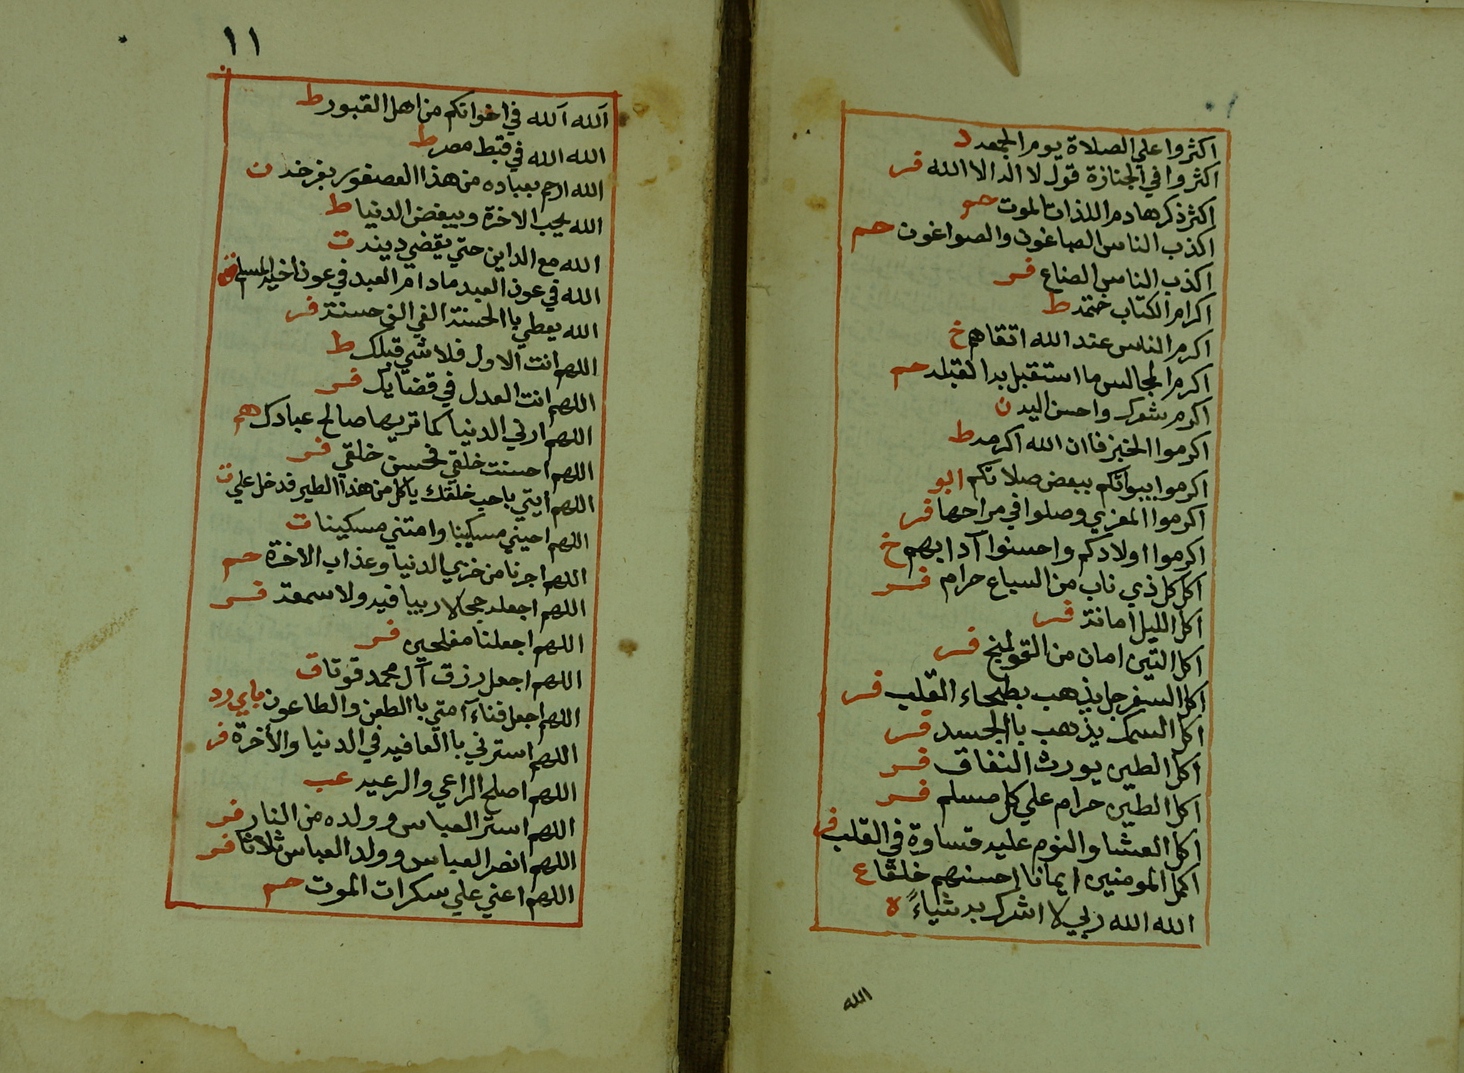 اكثروا علي الصلاة يوم الجمعه د
اكثروا في الجنازة قول لا اله الا الله فر
اكثر ذكر هادم اللذات الموت حم
اكذب الناس الصباغون والصواغون حم
اكذب الناس الصناع فر
اكرام الكتاب ختمه ط
اكرم الناس عند الله اتقاهم خ
اكرم المجالس ما استقبل به القبله حم
اكرم شعرك واحسن اليه ن
اكرموا الخبز فاان الله اكرمه ط
اكرموا بيوتكم ببعض صلاتكم ابو
اكرموا المعزي وصلوا في مراحها فر
اكرموا اولادكم واحسنوا آدابهم خ
اكل كل ذي ناب من السباع حرام فر
اكل الليل امانة فر
اكل التين امان من القولنج فر
اكل السفرجل يذهب بطخاء القلب فر
اكل السمك يذهب باالجسد فر
اكل الطين يورث النفاق فر
اكل الطين حرام علي كل مسلم فر
اكل العشا والنوم عليه قساوة في القلب فر
اكمل المومنين ايمانا احسنهم خلقا ع
الله الله ربي لا اشرك به شياءً ه
الله
١١
الله الله في اخوانكم من اهل القبور ط
الله الله في قبط مصر ط
الله ارحم بعباده من هذا العصفور بفرخه ن
الله يحب الاخرة ويبغض الدنيا ط
الله مع الداين حتي يقضي دينه ت
الله في عون العبد مادام العبد في عون اخيه المسلم
الله يعطي باالحسنة الفي الف حسنة فر
اللهم انت الاول فلا شي قبلك ط
اللهم انت العدل في قضايك فر
اللهم ارني الدنيا كما تريها صالح عبادك هم
اللهم احسنت خلقي فحسن خلقي فر
اللهم ايتي باحب خلقك ياكل من هذا الطير فدخل علي ت
اللهم احيني مسكينا وامتني مسكينا ت
اللهم اجرنا من خزي الدنيا وعذاب الاخرة حم
اللهم اجعله حجا لا رييا فيه ولا سمعة فر
اللهم اجعلنا مفلحين فر
اللهم اجعل رزق آل محمد قوتا ق
اللهم اجعل فناء امتي باالطعن والطاعون
اللهم استرني باالعافيه في الدنيا والأخرة فر
اللهم اصلح الراعي والرعيه عب
اللهم استر العباس وولده من النار فر
اللهم انصر العباس وولد العباس ثلاثا فر
اللهم اعني علي سكرات الموت حم